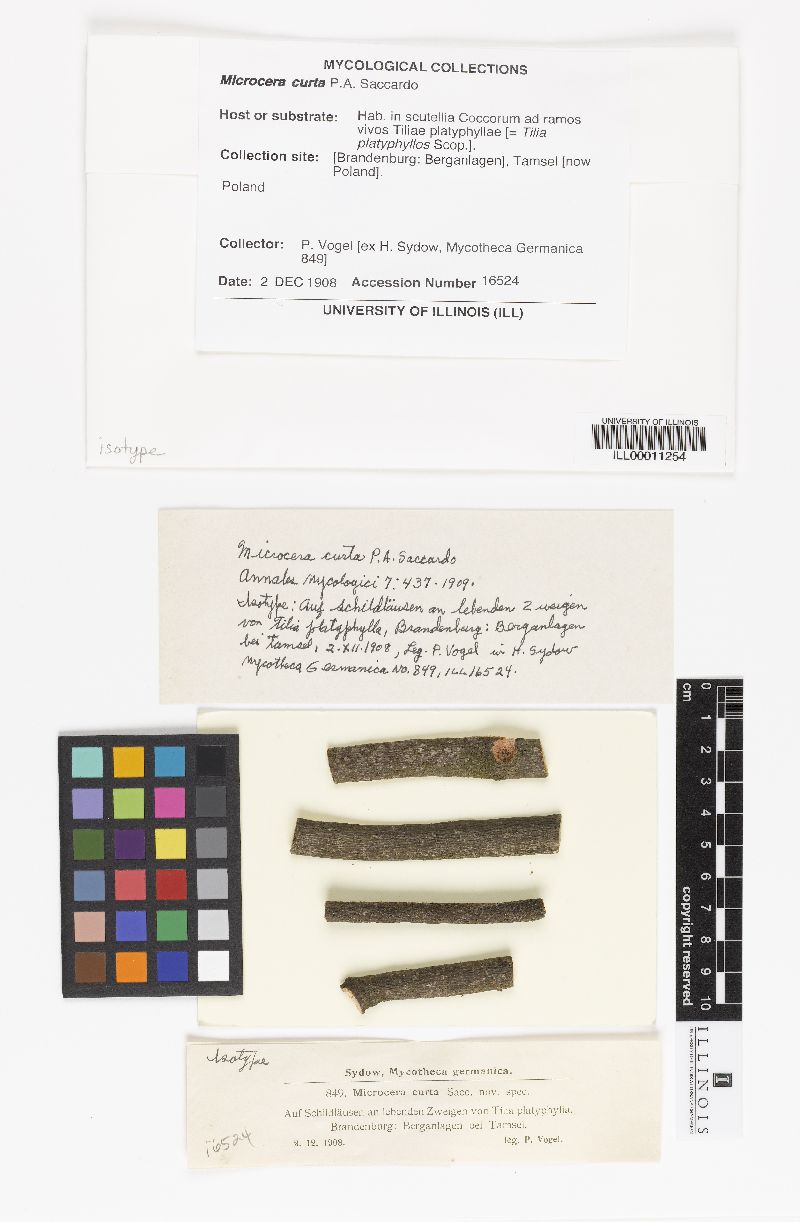 MYCOLOGICAL COLLECTIONS
Microcera curta P.A. Saccardo
Host or substrate: Hab. in scutellia Coccorum ad ramos
vivos Tiliae platyphyllae [= Tilia
platyphyllos Scop.].
Collection site: [Brandenburg: Berganlagen], Tamsel [now
Poland].
Poland
Collector: P. Vogel [ex H. Sydow, Mycotheca Germanica
849]
Date: 2 DEC 1908 Accession Number 16524
UNIVERSITY OF ILLINOIS (ILL)
isotype
UNIVERSITY OF ILLINOIS
ILL00011254
Microcera curta P.A. Saccardo
Annales Mycologici 7:437.1909.
Isotype: Auf Schildläusen an lebenden Zweigen
von Tilia platyphylla, Brandenburg: Berganlagen
bei Tamsel, 2.XII.1908, Leg. P. Vogel in H. Sydow
Mycotheca Germanica No. 849, ILL 16524.
cm 0 1 2 3 4 5 6 7 8 9 10
copyright reserved
I ILLINOIS
Isotype
Sydow, Mycotheca germanica.
849. Microcera curta Sacc. nov. spec.
Auf Schildläusen an lebenden Zweigen von Tilia platyphylla.
Brandenburg: Berganlagen bei Tamsel.
2. 12. 1908. leg. P. Vogel.
16524